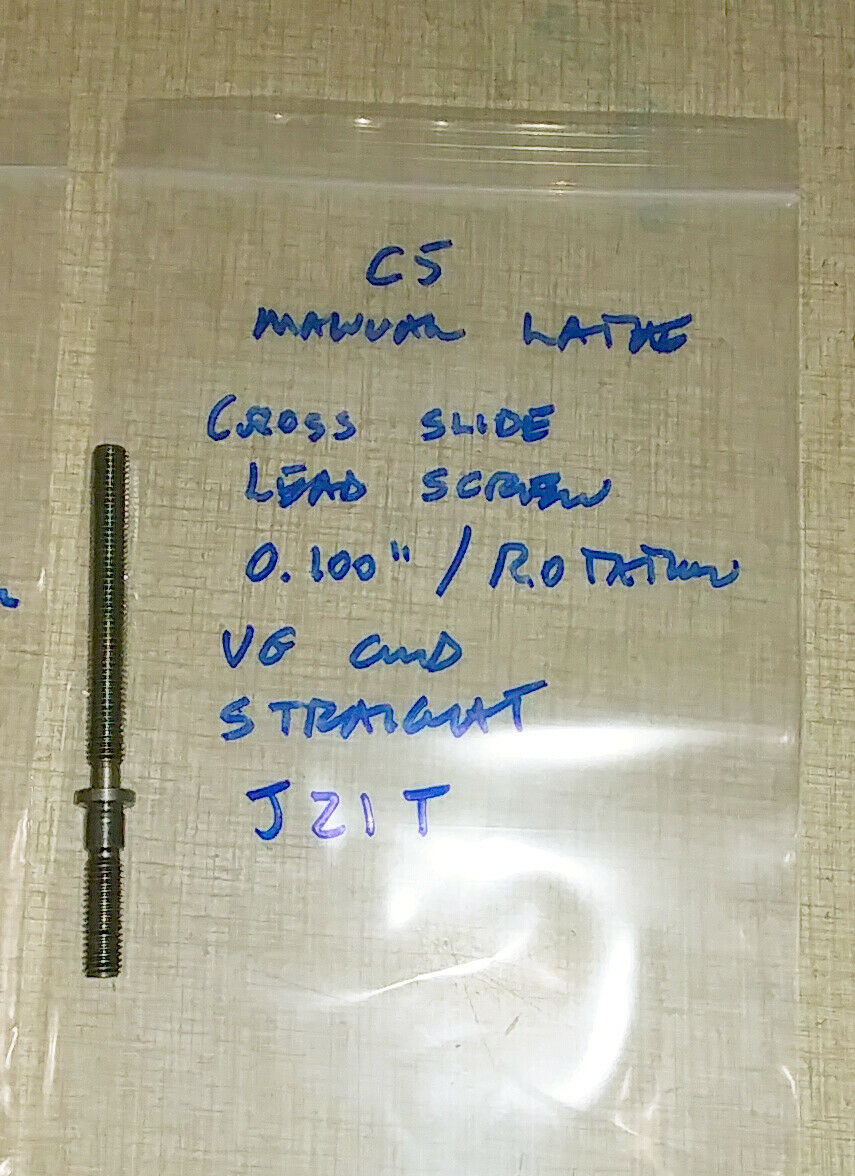 C5
MANUAL LATHE
CROSS SLIDE
LEAD SCREW
0.100" / ROTATION
VG COND
STRAIGHT
J21T